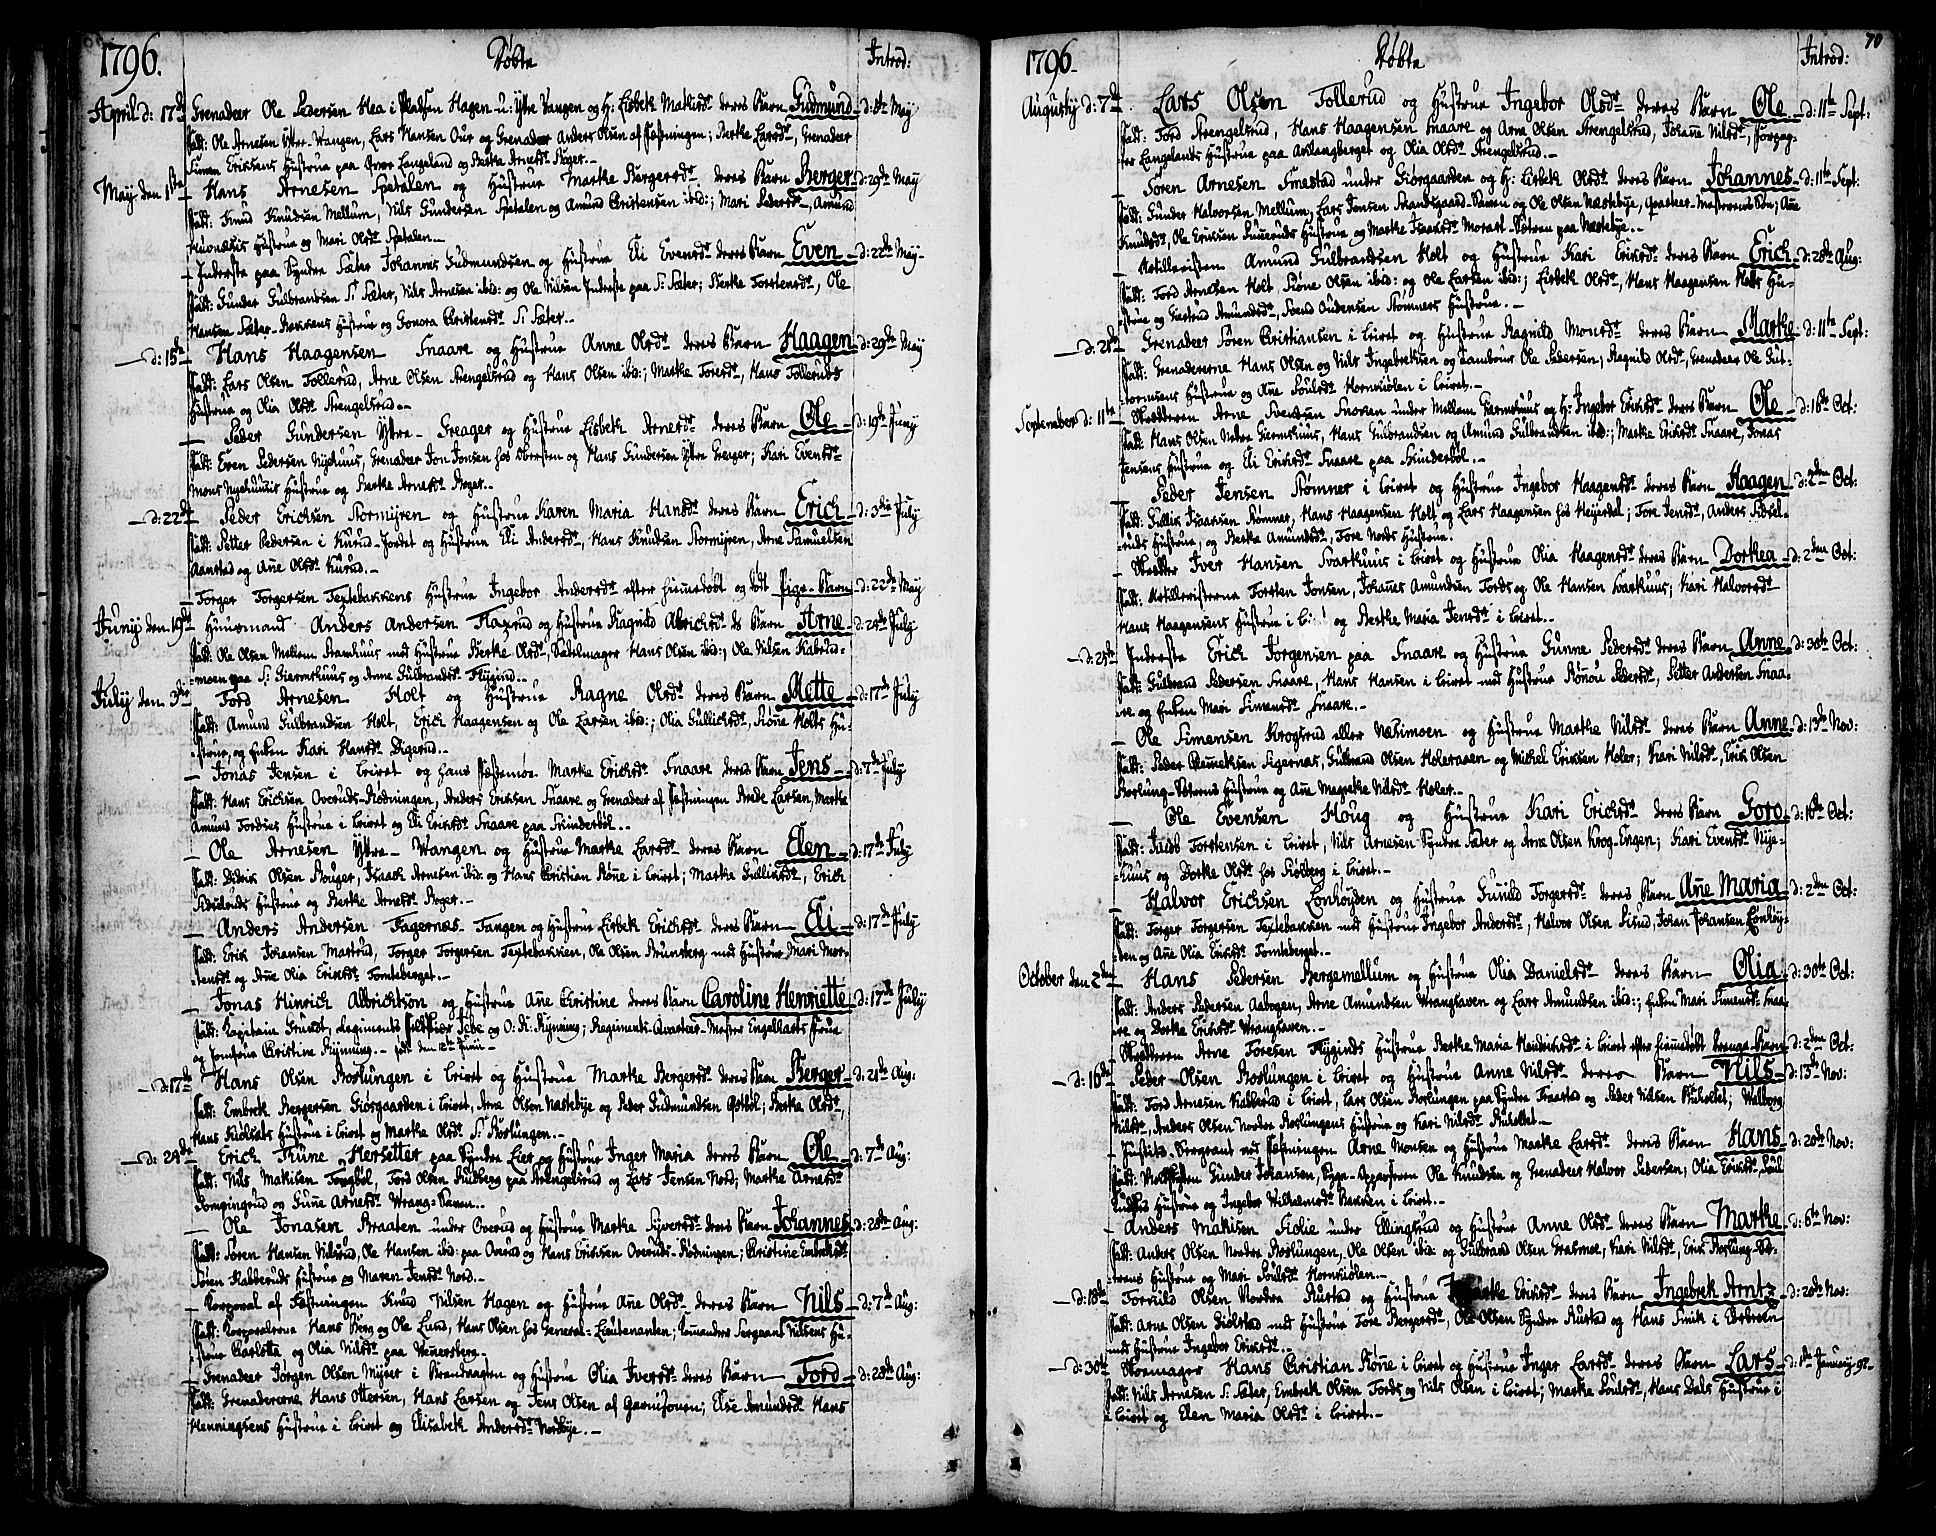 1796. Döbte Introd:
April d: 17de Grenadeer Ole Pedersen Hea i Pladsen Hagen u: Ytre Vangen og H: Lisbek Mathisd: deres Barn Gudmund d: 8de May
fadd: Ole Arnesen Ytter-Wangen, Lars Hansen Our og Grenadeer Anders Olsen af Fæstningen; Berthe Larsd:, Grenadeer
Simen Eriksens Hustrue paa Langeland og Berthe Arnesd: Roger.
May den 1ste Hans Arnesen Spetalen og Hustrue Marthe Bergersd: deres Barn Berger d: 29de May
fadd: Knud Knudsen Mellum, Nils Gundersen Spetalen og Amund Christensen ibid:; Mari Pedersd:, Amund
Hustrue og Mari Olsd: Spetalen.
Inderste paa Syndre Sæter Johannes Gudmundsen og Hustrue Eli Evensd: deres Barn Even d: 22de May
fadd: Gunder Gulbrandsen S: Sæter, Nils Arnesen ibid: og Ole Nilsen Inderste paa S: Sæter; Berthe Torstensd:, Ole
Hansen Sæter-Bakkens Hustrue og Gonora Christensd: S: Sæter.
d: 15de Hans Haagensen Snaare og Hustrue Anne Olsd: deres Barn Haagen d: 29de May
fadd: Lars Olsen Tollerud, Arne Olsen Strengelsrud og Hans Olsen ibid:; Marthe Toresd:, Hans Tolleruds
Hustrue og Olia Olsd: Strengelsrud.
Peder Gundersen Ytre-Greager og Hustrue Lisbek Arnesd: deres Barn Ole d: 19de Juny
fadd: Even Pedersen Nyehuus, Grenadeer Jon Jonsen hos Obersten og Hans Gundersen Ytre Greger; Kari Evensd:
Mons Nyehuusis Hustrue og Berthe Arnesd: Roger.
d: 22de Peder Erichsen Stormyren og Hustrue Karen Maria Hansd: deres Barn Erich d: 3die July
fadd: Petter Pedersen i Kurud-Jordet og Hustrue Eli Andersd:, Hans Knudsen Stormyren, Arne Samuelsen
Aanstad og Ane Olsd: Kurud.
Torger Torgersen Textebakkens Hustrue Ingebor Andersd: efter hiemedöbt og dödt Pige-Barn d: 22de May
Juny den 19de Huusmand Anders Andersen Flaxrud og Hustrue Ragnild Albrichsd: ds Barn Arne d: 24de July
fadd: Ole Olsen Mellem Siermhuus med Hustrue Berthe Olsd:, Sadelmager Hans Olsen ibid:, Ole Nilsen Kabrud-
moen paa S: Giermshuus og Anne Gulbrandsd: Flygind.
July den 3die Tord Arnesen Holt og Hustrue Ragne Olsd: deres Barn Mette d: 17de July
fadd: Amund Gulbrandsen Holt, Erich Haagensen og Ole Larsen ibid:; Olia Gullichsd:, Siöne Holts Hu-
strue, og Enken Kari Hansd: Digerud.
Jonas Jensen i Leiret og hans Fæstemöe Marthe Erichsd: Snaare deres Barn Jens d: 7de July
fadd: Hans Erichsen Overuds-Rödningen, Anders Erichsen Snaare og Grenadeer af Fæstningen Arede Larsen, Marthe
Amund Tordses Hustrue i Leiret og Eli Eriksd: Snaare paa Skinderböl.
Ole Arnesen Ytre-Wangen og Hustrue Marthe Larsd: deres Barn Elen d: 17de July
fadd: Didrik Olsen Rouger, Isaach Arnesen ibid: og Hans Christian Röne i Leiret; Marthe Gulliksd:, Erich
Sidselruds Hustrue og Berthe Arnesd: Roger.
Anders Andersen Fagernæs-Tangen og Hustrue Lisbek Erichsd: deres Barn Eli d: 17de July
fadd: Erik Johansen Mastrud, Torger Torgersen Textebakken, Ole Olsen Brunsberg med Hustrue Mari Mor-
tensd: og Ane Olia Eriksd: Tomteberget.
Jonas Hinrich Albrichtson og Hustrue Ane Christine deres Barn Caroline Henriette d: 17de July
fadd: Kapitain Grundt, Regiments Feldskier Jebe og O: K: Rynning; Regiments-Quarteer-Mester Engelharts Frue
og Jomfrue Christine Rynning. födt den 12te Juni
d: 17de Hans Olsen Roslungen i Leiret og Hustrue Marthe Bergersd: deres Barn Berger d: 21de Aug:
fadd: Embrek Bergersen Giösgaarden i Leiret, Arne Olsen Næstebye og Peder Gudmundsen Ostböl; Berthe Olsd:,
Hans Kiölsats Hustrue i Leiret og Marthe Olsd: S: Roslungen.
d: 24de Erich Thune Hersetter paa Syndre Lier og Hustrue Inger Maria deres Barn Ole d: 7de Aug:
fadd: Nils Mathisen Tongböl, Tord Olsen Rudberg paa Strengelsrud og Lars Jensen Nord; Marthe Arnesd:
Kompingrud og Sune Arnesd: Wrang-Haven.
Ole Jonasen Braaten under Overud og Hustrue Marthe Syversd: deres Barn Johannes d: 28de Aug:
fadd: Sören Hansen Nilsrud, Ole Hansen ibid: paa Overud og Hans Eriksen Overuds-Rödningen; Christine Embreksd:
Sören Kabberuds Hustrue og Maren Jensd: Nord.
Korporal af Fæstningen Knud Nilsen Hagen og Hustrue Ane Olsd: deres Barn Nils d: 7de Aug:
fadd: Korporalerne Hans Berg og Ole Lund, Hans Olsen hos General-Lieutenanten; Komandeer Sergeant Nilsens Hu-
strue Charlotta og Olia Nilsd: paa Wenersberg.
Grenadeer Jörgen Olsen Myset i Brandvagten og Hustrue Olia Iversd: deres Barn Tord d: 28de Aug:
fadd: Grenadererne Hans Ottersen, Hans Larsen og Jens Olsen af Garnisonen; Else Amundsd: Hans
Henningsens Hustrue i Leiret og Elisabek Andersd: Nordbye.
1796. Döbte Introd: 70
Augusty d: 7de Lars Olsen Tollerud og Hustrue Ingebor Olsd: deres Barn Ole d: 11te Sept:
fadd: Tord Strengelsrud, Hans Haagensen Snaare og Arne Olsen Strengelsrud, Johane Nilsd:, Forpag-
ter Langelands Hustrue paa Aaslangberget og Olia Olsd: Strengelsrud.
Sören Arnesen Smestad under Giörgaarden og H: Lisbek Olsd: deres Barn Johannes d: 11te Sept:
fadd: Gunder Halvorsen Mellum, Lars Jensen Strandsgaard-Haven og Ole Olsen Næstebye, Qvarteer-Mesterens Sön; Ane
Knudsd:, Ole Eriksen Hustrue og Marthe Isaachsd: Morast-Östren paa Næstebye.
Artilleristen Amund Gulbrandsen Holt og Hustrue Kari Eriksd: deres Barn Erich d: 28de Aug:
fadd: Tord Arnesen Holt, Siöne Olsen ibid: og Ole Larsen ibid:; Lisbek Olsd:, Hans Haagensen Holts Hu-
strue og Giertrud Amundsd:, Svend Gudensen Stömners Hustrue.
d: 21de Grenadeer Sören Christiansen i Leiret og Hustrue Ragnild Monsd: deres Barn Marthe d: 11te Sept:
fadd: Grenadererne Hans Olsen og Nils Ingebreksen og Tambour Ole Pedersen; Ragnild Olsd:, Grenadeer Ole Gut-
tormsens Hustrue og Ane Poulsd: Hornkiölen i Leiret.
September d: 11te Skrædderen Arne Svendsen Snoren under Mellem Giermshuus og H: Ingebor Eriksd: deres Barn Ole d: 16de Oct:
fadd: Hans Olsen Nedre Giermshuus, Hans Gulbrandsen og Amund Gulbrandsen ibid:; Marthe Eriksd: Snaare, Jonas
Jensens Hustrue og Eli Eriksd: Snaare paa Skinderböl.
Peder Jensen Römner i Leiret og Hustrue Ingebor Haagensd: deres Barn Haagen d: 2den Oct:
fadd: Gullik Isaaksen Römner, Hans Haagensen Holt og Lars Haagensen hos Heyerdal; Tore Jensd:, Anders Sidsel-
ruds Hustrue, og Berthe Amundsd:, Tore Nords Hustrue.
Skrædder Iver Hansen Svarthuus i Leiret og Hustrue Olia Haagensd: deres Barn Dorthea d: 2den Oct:
fadd: Artilleristerne Torsten Jonsen, Johanes Amundsen Tords og Ole Hansen Svarthuus; Kari Halvorsd:
Hans Haagensens Hustrue i og Berthe Maria Jensd: i Leiret.
d: 25de Inderste Erich Jörgensen paa Snaare og Hustrue Gunne Pedersd: deres Barn Anne d: 30te Oct:
fadd: Gulbrand Pedersen Snaare, Hans Hansen i Leiret med Hustrue Rönou Pedersd:, Petter Andersen Snaa-
re og Enken Mari Simensd: Snaare.
Ole Simensen Krogsrud eller Næssmoen og Hustrue Marthe Nilsd: deres Barn Anne d: 13de Nov:
fadd: Peder Clemetsen Sigernæs, Gulbrand Olsen Holeraaen og Mickel Eriksen Holer; Kari Nilsd:, Erik Olsen
Roslung-Östrens Hustrue og Ane Magrethe Nilsd: Holer.
Ole Evensen Houg og Hustrue Kari Erichsd: deres Barn Goro d: 16de Oct:
fadd: Torstensen i Leiret, Nils Arnesen Syndre Sæter og Arne Olsen Krog-Engen; Kari Evensd: Nye-
huus og Dorthe Olsd: hos Stolberg i Leiret.
Halvor Erichsen Lonhöyden og Hustrue Gunild Torgersd: deres Barn Ane Maria d: 2den Oct:
fadd: Torger Torgersen Textebakken med Hustrue Ingebor Andersd:, Halvor Olsen Lisud, Johan Johansen Lonhöy-
den og Ane Olia Eriksd: Tomteberget.
October den 2den Hans Pedersen Bergemellum og Hustrue Olia Danielsd: deres Barn Olia d: 30te Oct:
fadd: Anders Pedersen Aabogen, Arne Amundsen Wranghaven og Lars Amundsen ibid:; Enken Mari Simensd: Snaa-
re og Dorthe Eriksd: Wranghaven.
Skrædderen Arne Toresen Flyginds Hustrue Berthe Maria Hendriksd: i Leiret efter hiemedöbt Drenge-Barn d: 2den Oct:
d: 16de Peder Olsen Roslungen i Leiret og Hustrue Anne Nilsd: deres Barn Nils d: 13de Nov:
fadd: Tord Arnesen Kabberud i Leiret, Lars Olsen Roslungen paa Syndre Fraastad og Peder Nilsen Ruholtet; Walborg
Nilsd:, Anders Olsen Nordre Roslungens Hustrue og Kari Nilsd: Ruholtet.
Justits-Sergeant ved Fæstningen Arne Monsen og Hustrue Marthe Larsd: deres Barn Hans d: 20de Nov:
fadd: Gunder Johansen, Ole Knudsen og Grenadeer Halvor Pedersen; Olia Eriksd:, Poul
Hustrue og Ingebor Wilhelmsd: Bakken i Leiret.
Anders Mathisen Holie under Ellingsrud og Hustrue Anne Olsd: deres Barn Marthe d: 6te Nov:
fadd: Anders Olsen Nordre Roslungen, Ole Olsen ibid: og Gulbrand Olsen Grasmoe, Kari Nilsd:, Erik Roslung-Ös-
trens Hustrue og Mari Poulsd: Hornkiölen.
d: 18de Torkild Olsen Nordre Rustad og Hustrue Eriksd: deres Barn Ingebrek Arntz d: 20de Nov:
fadd: Arne Olsen Siölstad med Hustrue Tore Bergersd:, Ole Olsen Syndre Rustad og Hans Smith i
med Hustrue Ingebor Eriksd:.
d: 30te Skoemager Hans Christian Röne i Leiret og Hustrue Inger Larsd: deres Barn Lars d: 1ste January 97
fadd: Nils Arnesen S: Sæter, Embrek Olsen Tords og Nils Olsen i Leiret; Marthe Poulsd:, Hans Dals Hustrue i
Leiret og Elen Maria Olsd: i Leiret.